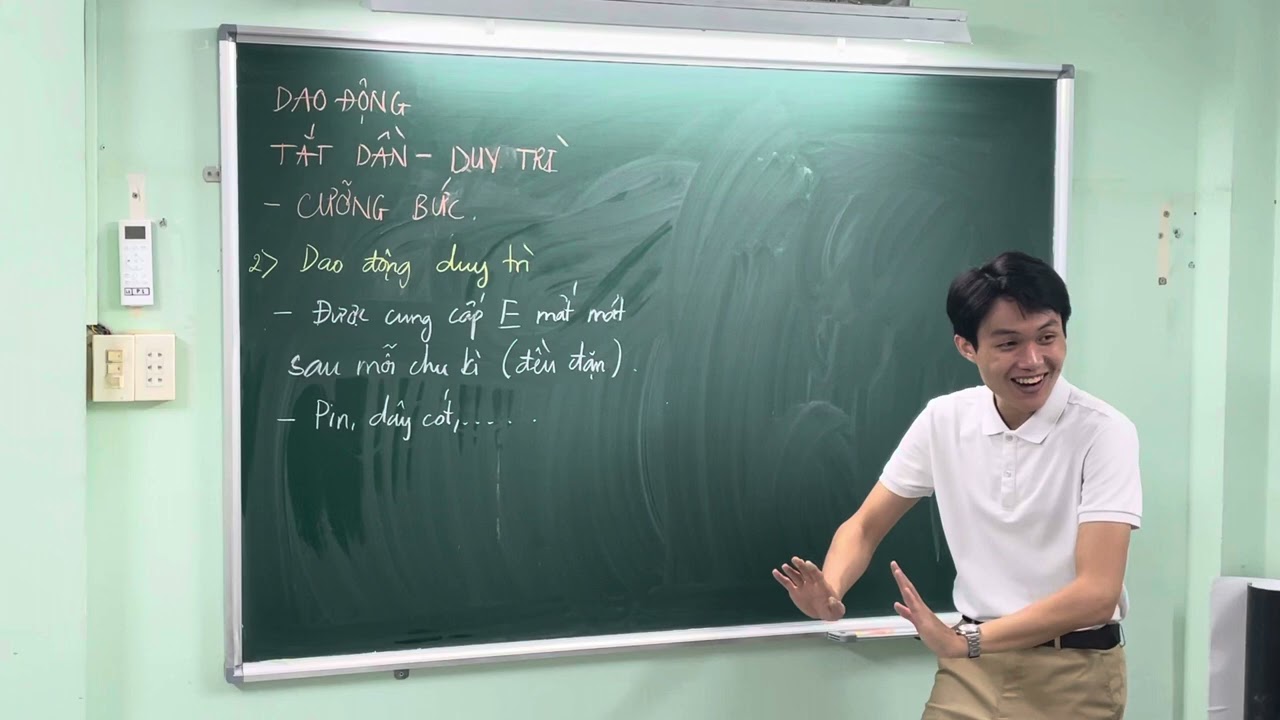 DAO ĐỘNG
TẮT DẦN - DUY TRÌ
- CƯỠNG BỨC.
2> Dao động duy trì
- Được cung cấp E mất mát
sau mỗi chu kì (đều đặn).
- Pin, dây cót,.....